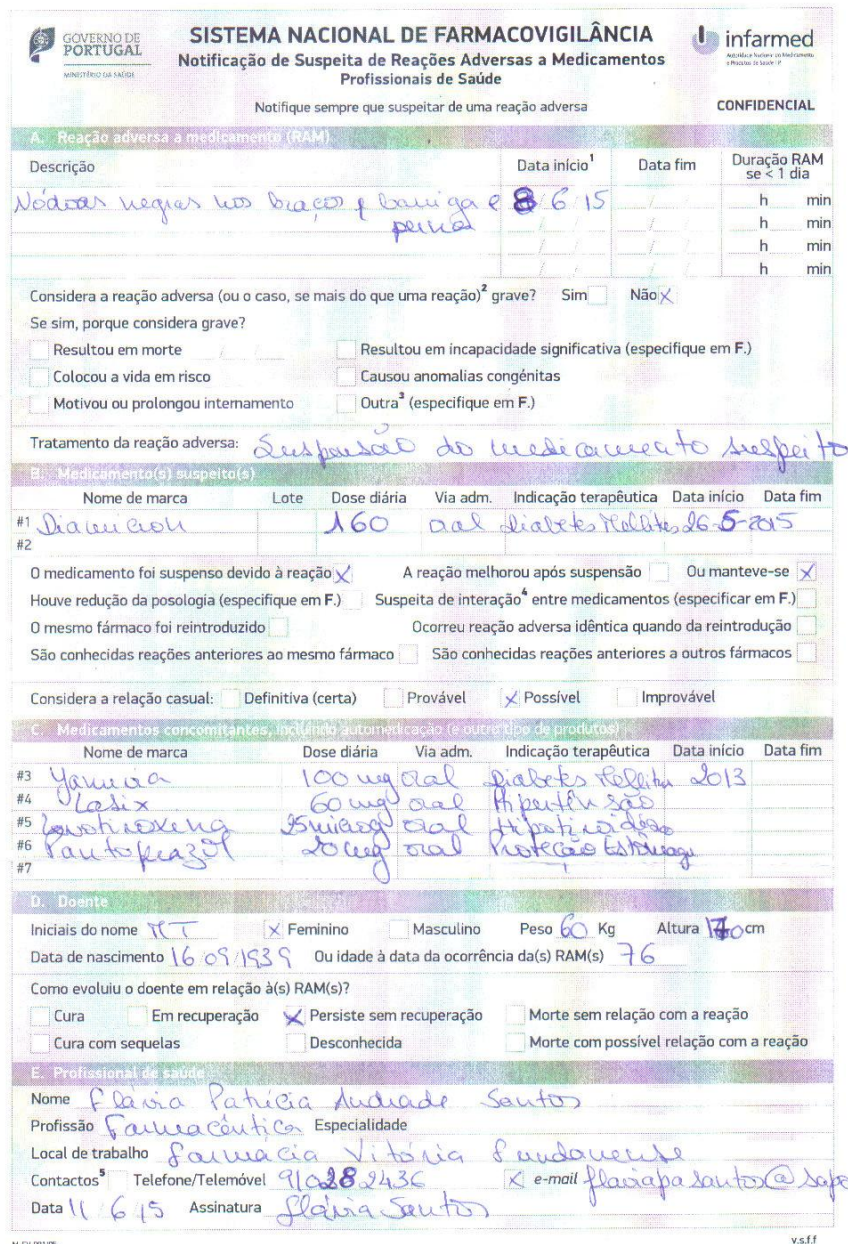 GOVERNO DE
PORTUGAL
MINISTÉRIO DA SAÚDE
SISTEMA NACIONAL DE FARMACOVIGILÂNCIA
Notificação de Suspeita de Reações Adversas a Medicamentos
Profissionais de Saúde
infarmed
Notifique sempre que suspeitar de uma reação adversa
CONFIDENCIAL
A. Reação adversa a medicamento (RAM)
Descrição Data início¹ Data fim Duração RAM se < 1 dia
Nódoas negras nos braços, barriga e 8/6/15 h min
pernas h min
h min
h min
Considera a reação adversa (ou o caso, se mais do que uma reação)² grave? Sim Não X
Se sim, porque considera grave?
Resultou em morte Resultou em incapacidade significativa (especifique em F.)
Colocou a vida em risco Causou anomalias congénitas
Motivou ou prolongou internamento Outra³ (especifique em F.)
Tratamento da reação adversa: Suspensão do medicamento suspeito
B. Medicamento(s) suspeito(s)
Nome de marca Lote Dose diária Via adm. Indicação terapêutica Data início Data fim
#1 Diamicron 160 oral Diabetes Mellitus 26-5-2015
#2
O medicamento foi suspenso devido à reação X A reação melhorou após suspensão Ou manteve-se X
Houve redução da posologia (especifique em F.) Suspeita de interação⁴ entre medicamentos (especificar em F.)
O mesmo fármaco foi reintroduzido Ocorreu reação adversa idêntica quando da reintrodução
São conhecidas reações anteriores ao mesmo fármaco São conhecidas reações anteriores a outros fármacos
Considera a relação casual: Definitiva (certa) Provável X Possível Improvável
C. Medicamentos concomitantes, incluindo automedicação (e outro tipo de produtos)
Nome de marca Dose diária Via adm. Indicação terapêutica Data início Data fim
#3 Januvia 100 mg oral Diabetes Mellitus 2013
#4 Lasix 60 mg oral Hipertensão
#5 Levotiroxina 25 microg oral Hipotiroidismo
#6 Pantoprazol 20 mg oral Proteção Estômago
#7
D. Doente
Iniciais do nome MT X Feminino Masculino Peso 60 Kg Altura 170 cm
Data de nascimento 16/09/1939 Ou idade à data da ocorrência da(s) RAM(s) 76
Como evoluiu o doente em relação à(s) RAM(s)?
Cura Em recuperação X Persiste sem recuperação Morte sem relação com a reação
Cura com sequelas Desconhecida Morte com possível relação com a reação
E. Profissional de saúde
Nome Flávia Patrícia Andrade Santos
Profissão Farmacêutica Especialidade
Local de trabalho Farmácia Vitória Fundanense
Contactos⁵ Telefone/Telemóvel 910282436 X e-mail flaviapasantos@sapo
Data 11/6/15 Assinatura Flávia Santos
v.s.f.f